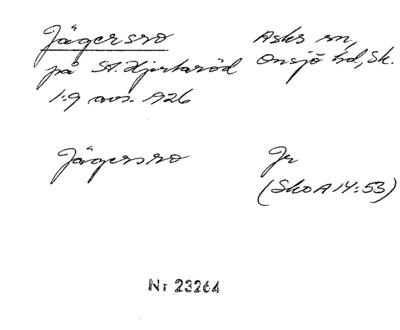 Jägersro Asks sn,
på St. Hjortaröd Onsjö hd, Sk.
1:9 avs. 1926
Jägersro Jr
(SkoA 14:53)
Nr 23264